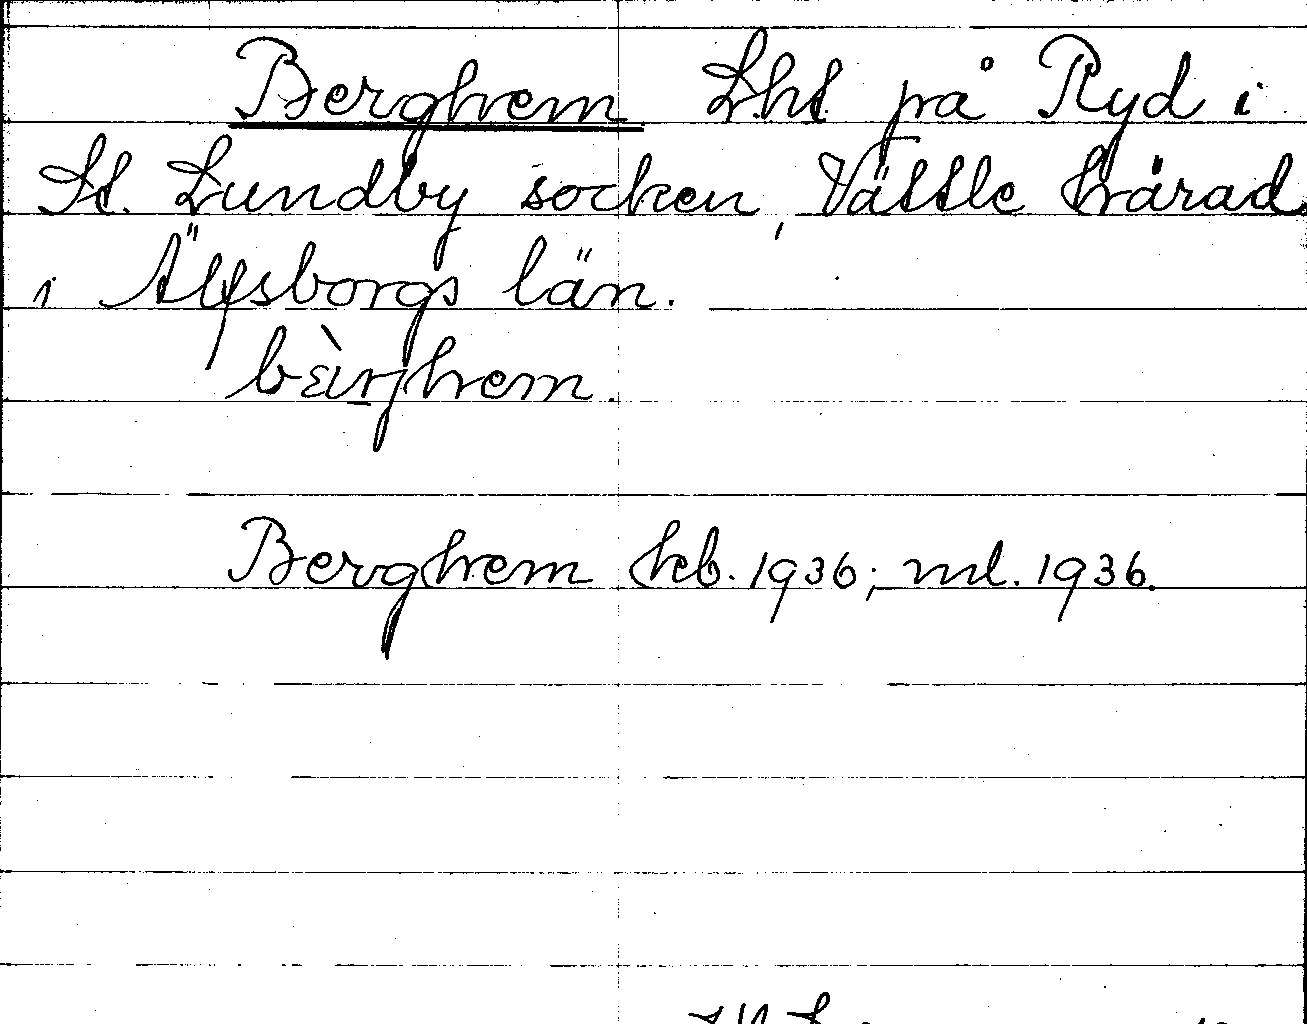 Berghem Lht på Ryd i
St. Lundby socken, Vättle härad
i Älfsborgs län.
bèrjhem.
Berghem hfb. 1936; ml. 1936.